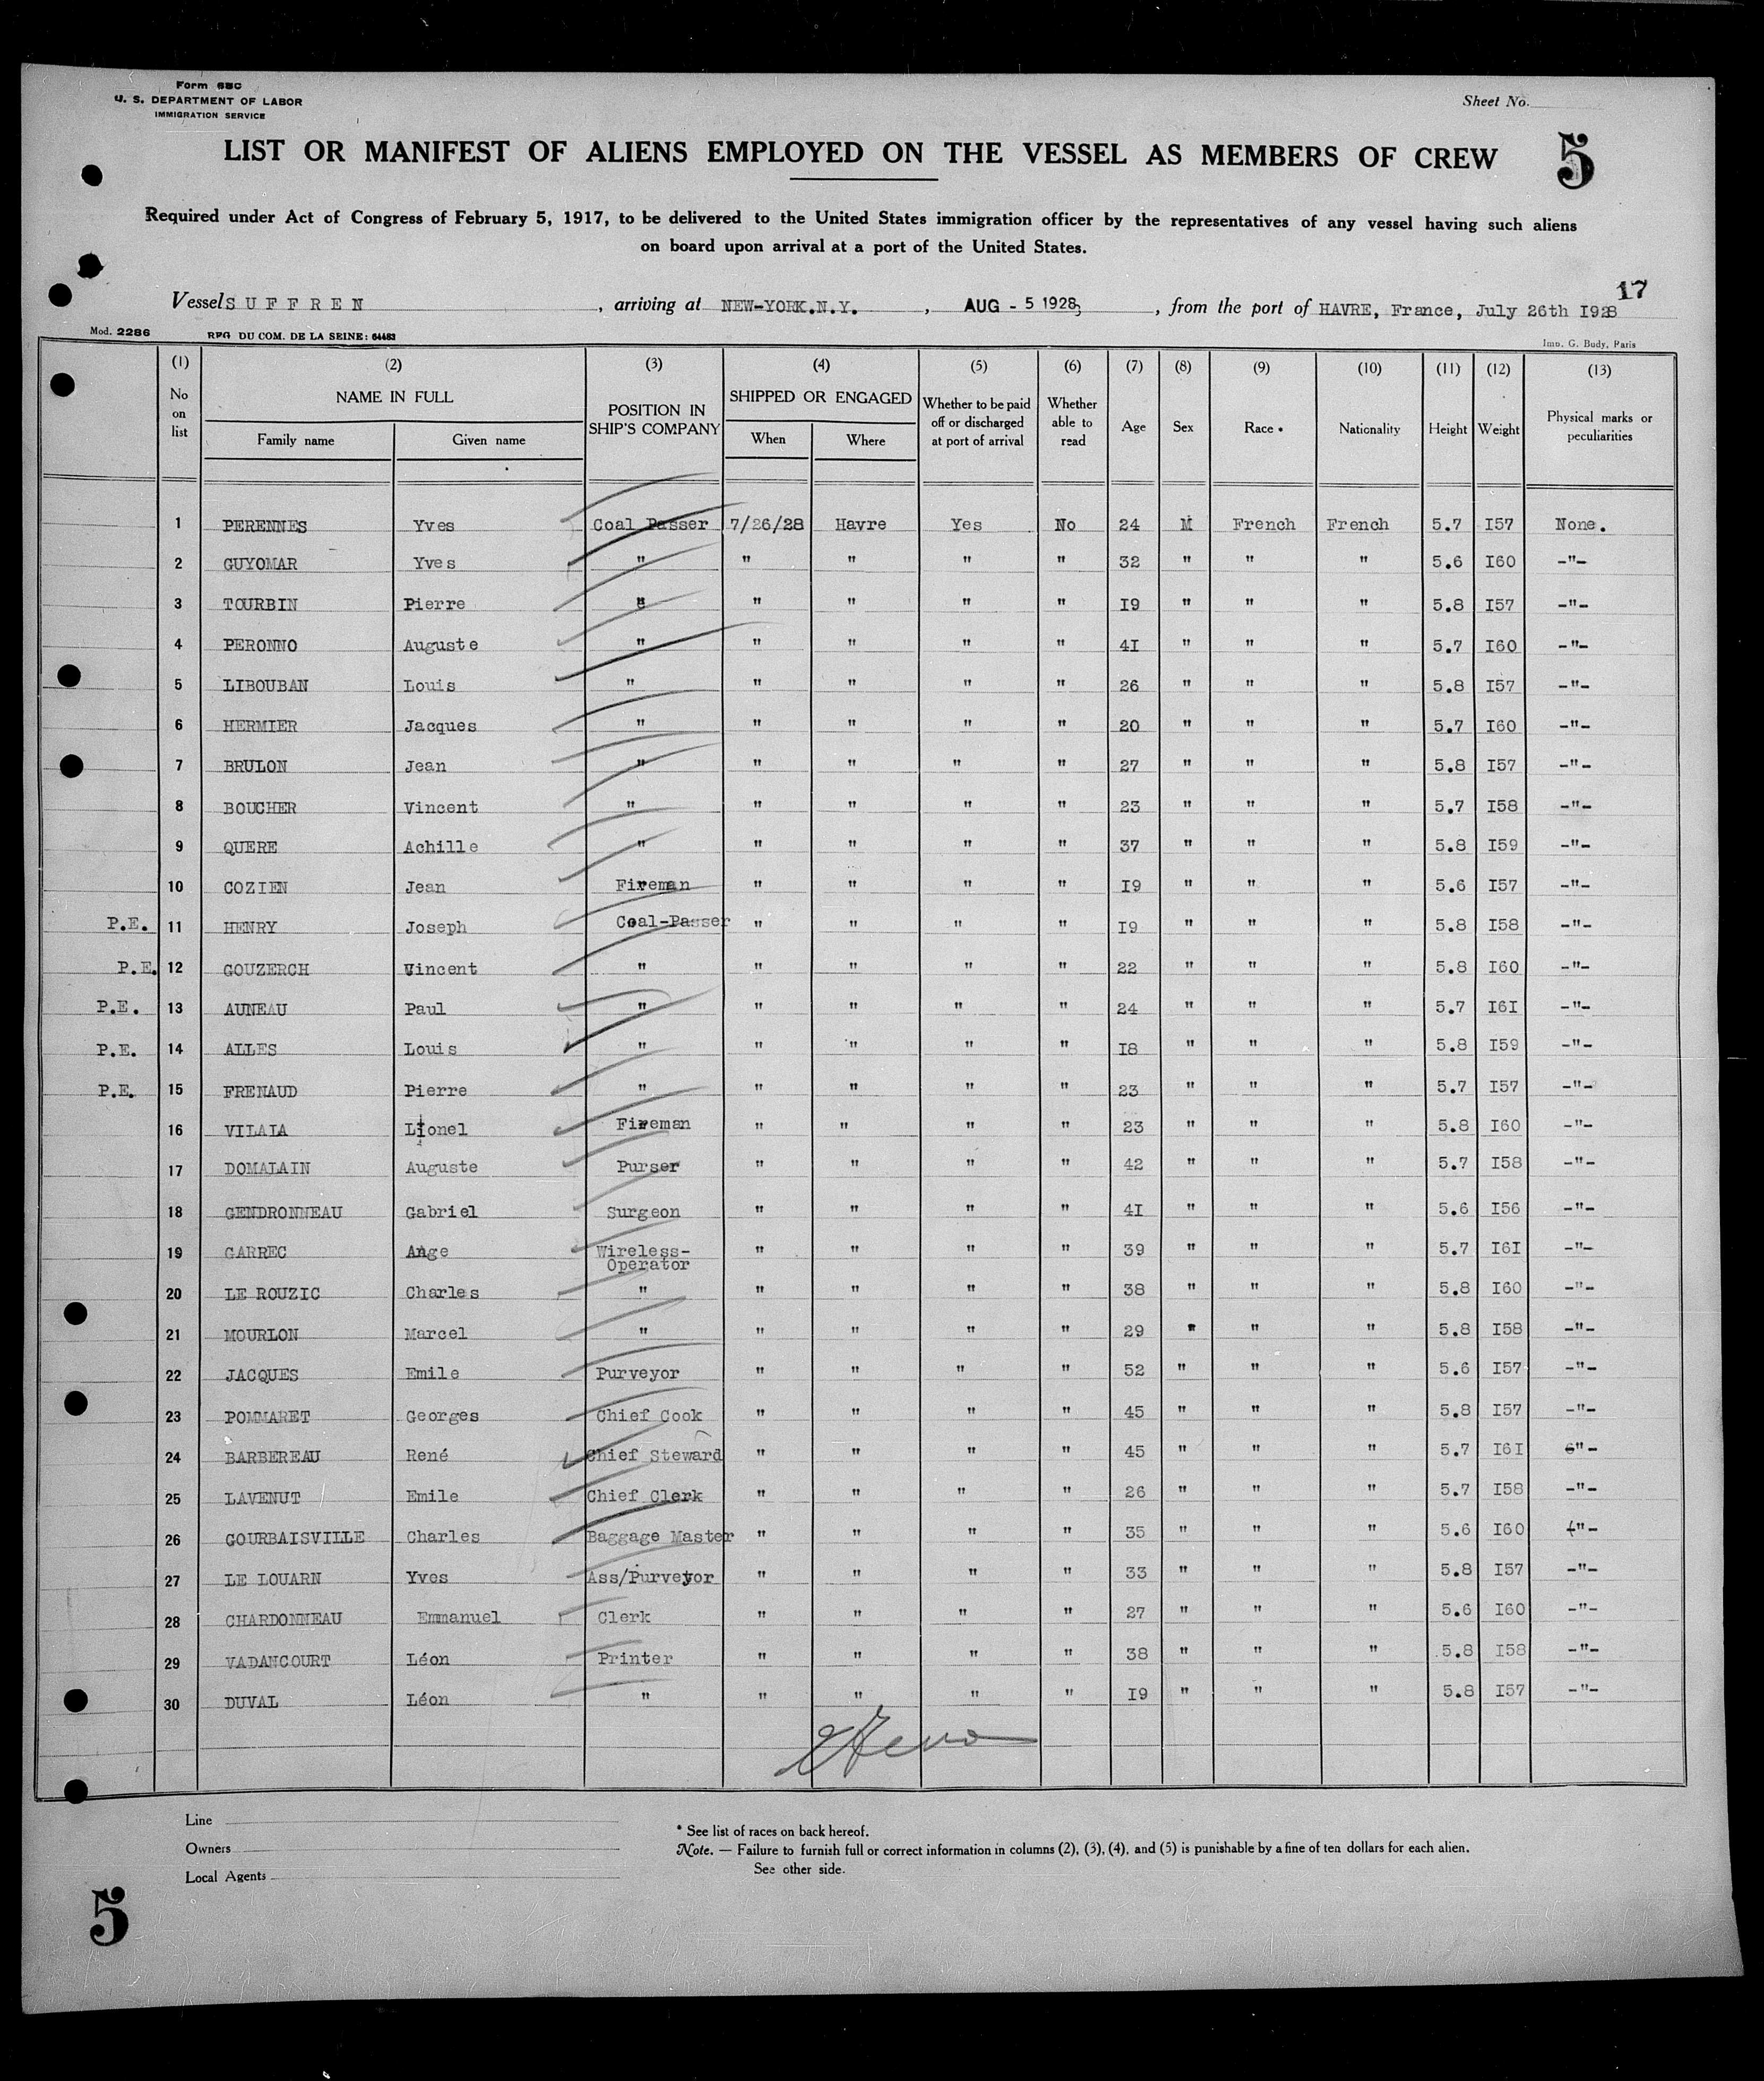 Form 680
U. S. DEPARTMENT OF LABOR
IMMIGRATION SERVICE
Sheet No.
LIST OR MANIFEST OF ALIENS EMPLOYED ON THE VESSEL AS MEMBERS OF CREW 5
Required under Act of Congress of February 5, 1917, to be delivered to the United States immigration officer by the representatives of any vessel having such aliens
on board upon arrival at a port of the United States.
17
Vessel S U F F R E N , arriving at NEW-YORK.N.Y. , AUG - 5 1928 , from the port of HAVRE, France, July 26th I928
Mod. 2286 RPG DU COM. DE LA SEINE: 64483 Imp. G. Budy, Paris
(1) (2) (3) (4) (5) (6) (7) (8) (9) (10) (11) (12) (13)
No on list NAME IN FULL Family name Given name POSITION IN SHIP'S COMPANY SHIPPED OR ENGAGED When Where Whether to be paid off or discharged at port of arrival Whether able to read Age Sex Race • Nationality Height Weight Physical marks or peculiarities
1 PERENNES Yves Coal Passer 7/26/28 Havre Yes No 24 M French French 5.7 I57 None.
2 GUYOMAR Yves " " " " " 32 " " " 5.6 I60 -"-
3 TOURBIN Pierre " " " " " I9 " " " 5.8 I57 -"-
4 PERONNO Auguste " " " " " 4I " " " 5.7 I60 -"-
5 LIBOUBAN Louis " " " " " 26 " " " 5.8 I57 -"-
6 HERMIER Jacques " " " " " 20 " " " 5.7 I60 -"-
7 BRULON Jean " " " " " 27 " " " 5.8 I57 -"-
8 BOUCHER Vincent " " " " " 23 " " " 5.7 I58 -"-
9 QUERE Achille " " " " " 37 " " " 5.8 I59 -"-
10 COZIEN Jean Fireman " " " " I9 " " " 5.6 I57 -"-
P.E. 11 HENRY Joseph Coal-Passer " " " " I9 " " " 5.8 I58 -"-
P.E. 12 GOUZERCH Vincent " " " " " 22 " " " 5.8 I60 -"-
P.E. 13 AUNEAU Paul " " " " " 24 " " " 5.7 I6I -"-
P.E. 14 ALLES Louis " " " " " I8 " " " 5.8 I59 -"-
P.E. 15 FRENAUD Pierre " " " " " 23 " " " 5.7 I57 -"-
16 VILALA Lionel Fireman " " " " 23 " " " 5.8 I60 -"-
17 DOMALAIN Auguste Purser " " " " 42 " " " 5.7 I58 -"-
18 GENDRONNEAU Gabriel Surgeon " " " " 4I " " " 5.6 I56 -"-
19 GARREC Ange Wireless-Operator " " " " 39 " " " 5.7 I6I -"-
20 LE ROUZIC Charles " " " " " 38 " " " 5.8 I60 -"-
21 MOURLON Marcel " " " " " 29 " " " 5.8 I58 -"-
22 JACQUES Emile Purveyor " " " " 52 " " " 5.6 I57 -"-
23 POMMARET Georges Chief Cook " " " " 45 " " " 5.8 I57 -"-
24 BARBEREAU René Chief Steward " " " " 45 " " " 5.7 I6I "-
25 LAVENUT Emile Chief Clerk " " " " 26 " " " 5.7 I58 -"-
26 GOURBAISVILLE Charles Baggage Master " " " " 35 " " " 5.6 I60 "-
27 LE LOUARN Yves Ass/Purveyor " " " " 33 " " " 5.8 I57 -"-
28 CHARDONNEAU Emmanuel Clerk " " " " 27 " " " 5.6 I60 -"-
29 VADANCOURT Léon Printer " " " " 38 " " " 5.8 I58 -"-
30 DUVAL Léon " " " " " I9 " " " 5.8 I57 -"-
Line
Owners
Local Agents
* See list of races on back hereof.
Note. — Failure to furnish full or correct information in columns (2), (3), (4), and (5) is punishable by a fine of ten dollars for each alien.
See other side.
5